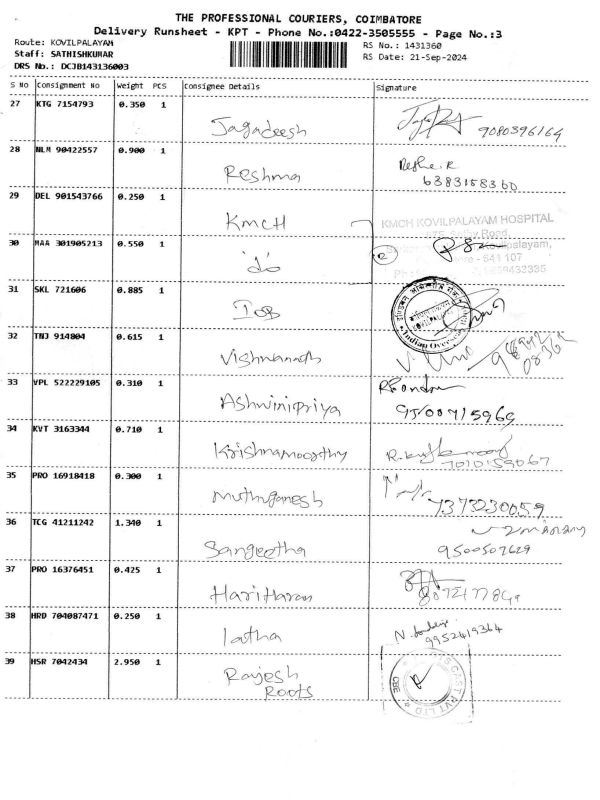 THE PROFESSIONAL COURIERS, COIMBATORE
Delivery Runsheet - KPT - Phone No.:0422-3505555 - Page No.:3
Route: KOVILPALAYAM
Staff: SATHISHKUMAR
DRS No.: DCJB143136003
RS No.: 1431360
RS Date: 21-Sep-2024
S No Consignment No Weight PCS Consignee Details Signature
27 KTG 7154793 0.350 1 Jagadeesh 9080396164
28 NLM 90422557 0.900 1 Reshma
6383158360
29 DEL 901543766 0.250 1 KMCH KMCH KOVILPALAYAM HOSPITAL
30 MAA 301905213 0.550 1 do Kovilpalayam,
641 107
31 SKL 721606 0.885 1 IOB
Indian Overseas
32 TNJ 914804 0.615 1
33 VPL 522229105 0.310 1 Ashwinipriya
9500715969
34 KVT 3163344 0.710 1 Krishnamoorthy
7010159067
35 PRO 16918418 0.300 1 Muthuganesh 7373230059
36 TCG 41211242 1.340 1 Sangeetha
9500507629
37 PRO 16376451 0.425 1 Hariharan
38 HRD 704087471 0.250 1 latha
9952419364
39 HSR 7042434 2.950 1 Rajesh
Roots
CAST PVT LTD
CBE